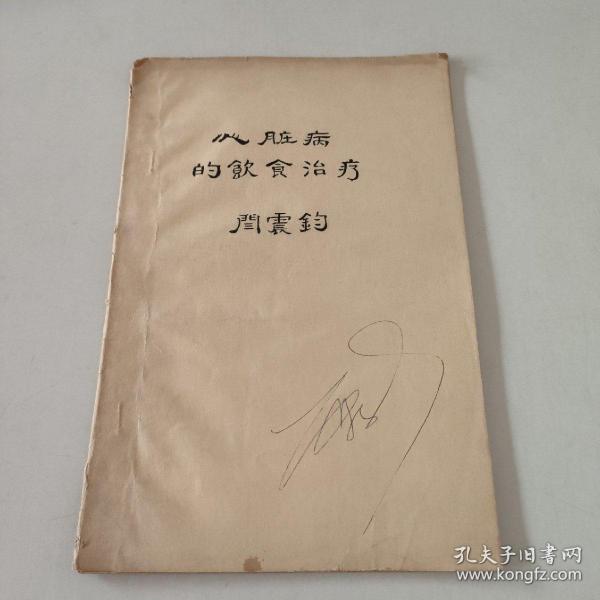 心脏病
的飲食治疗
閆震鈞
孔夫子旧書网
www.kongfz.com